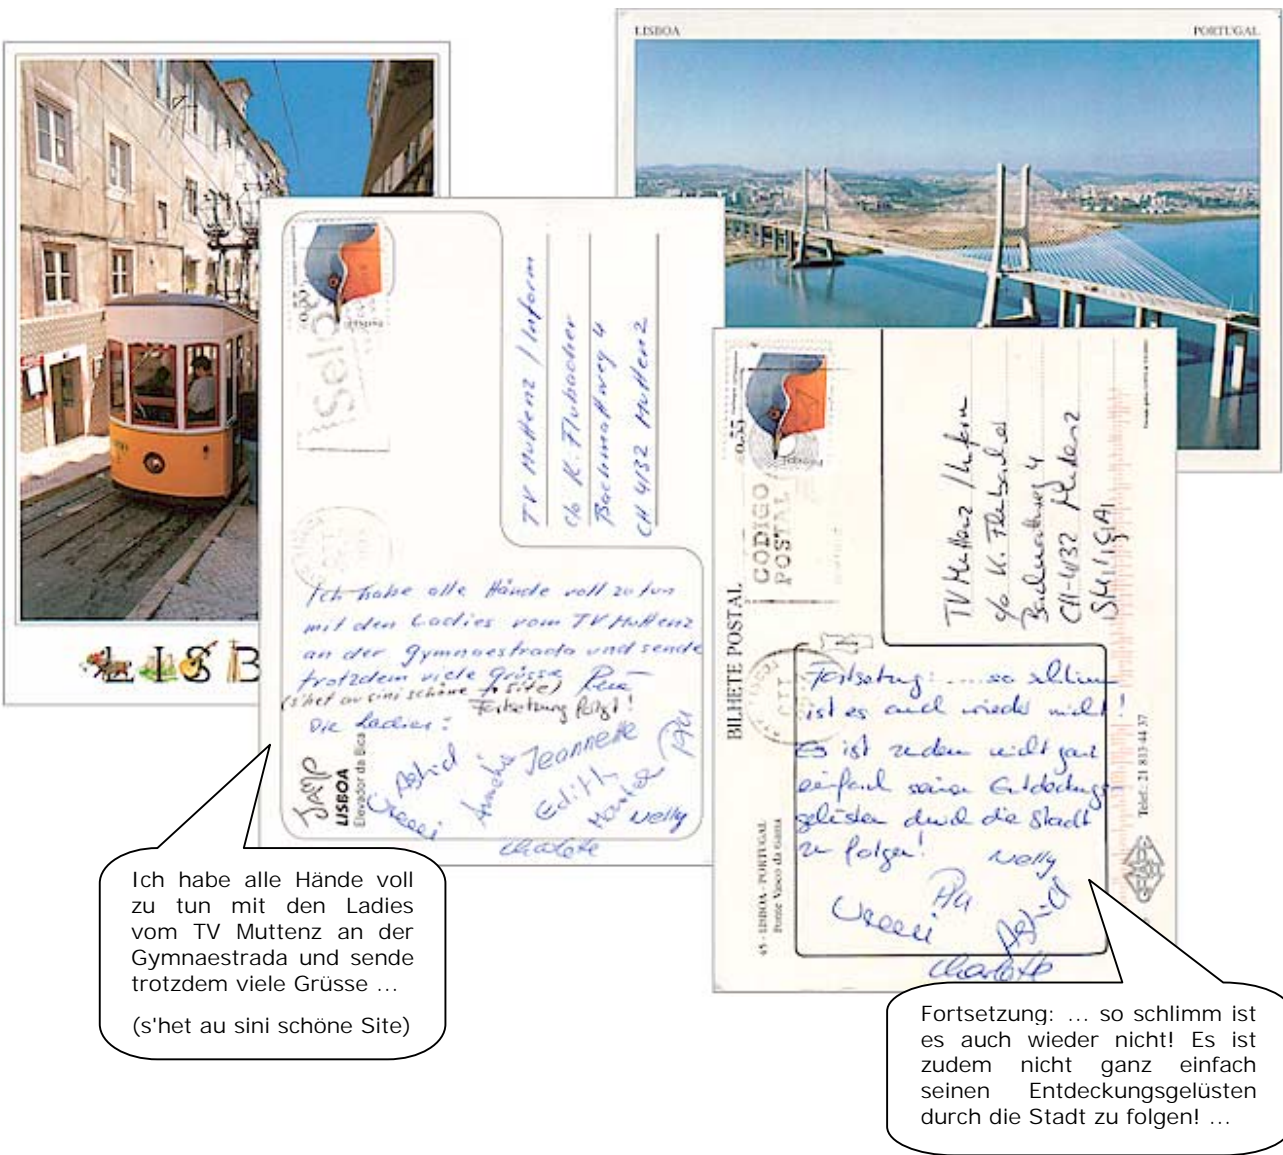 LISBOA
PORTUGAL
LISB
TV Muttenz / Inform
c/o K. Flubacher
Bachmattweg 4
CH 4132 Muttenz
Ich habe alle Hände voll zu tun
mit den Ladies vom TV Muttenz
an der Gymnaestrada und sende
trotzdem viele Grüsse
(s'het au sini schöne Site)
Fortsetzung folgt!
Die Ladies:
Astrid
Jeannette
Pia
Ureeli
Edith
Nelly
Charlotte
LISBOA
Elevador da Bica
0.55
CODIGO
POSTAL
BILHETE POSTAL
45 - LISBOA - PORTUGAL
Ponte Vasco da Gama
Telef.: 21 813 44 37
TV Muttenz / Inform
c/o K. Flubacher
Bachmattweg 4
CH-4132 Muttenz
Fortsetzung: .... so schlimm
ist es auch wieder nicht!
Es ist zudem nicht ganz
einfach seinen Entdeckungs-
gelüsten durch die Stadt
zu folgen!
Nelly
Pia
Astrid
Charlotte
Ich habe alle Hände voll
zu tun mit den Ladies
vom TV Muttenz an der
Gymnaestrada und sende
trotzdem viele Grüsse ...
(s'het au sini schöne Site)
Fortsetzung: ... so schlimm ist
es auch wieder nicht! Es ist
zudem nicht ganz einfach
seinen Entdeckungsgelüsten
durch die Stadt zu folgen! ...